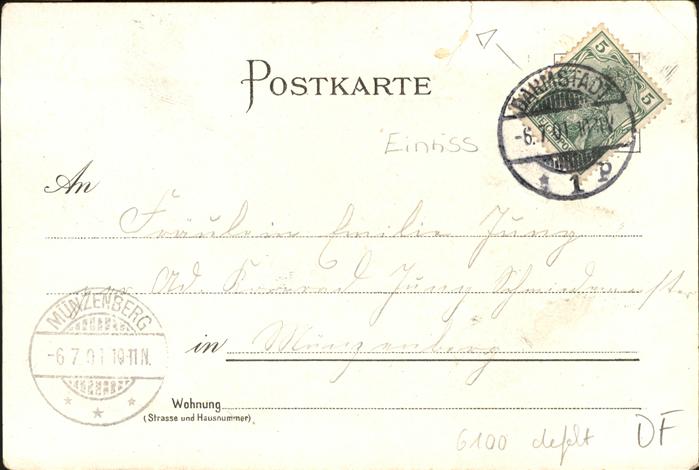 POSTKARTE
5 5
DARMSTADT
-6.7.01 10-11N.
* 1 P
Einriss
An
Fräulein Emilie Jung
Ad. Konrad Jung Schmiedemeister
MÜNZENBERG
-6 7 01 10-11N.
* * *
in Münzenberg
Wohnung
(Strasse und Hausnummer)
6100 defekt DF